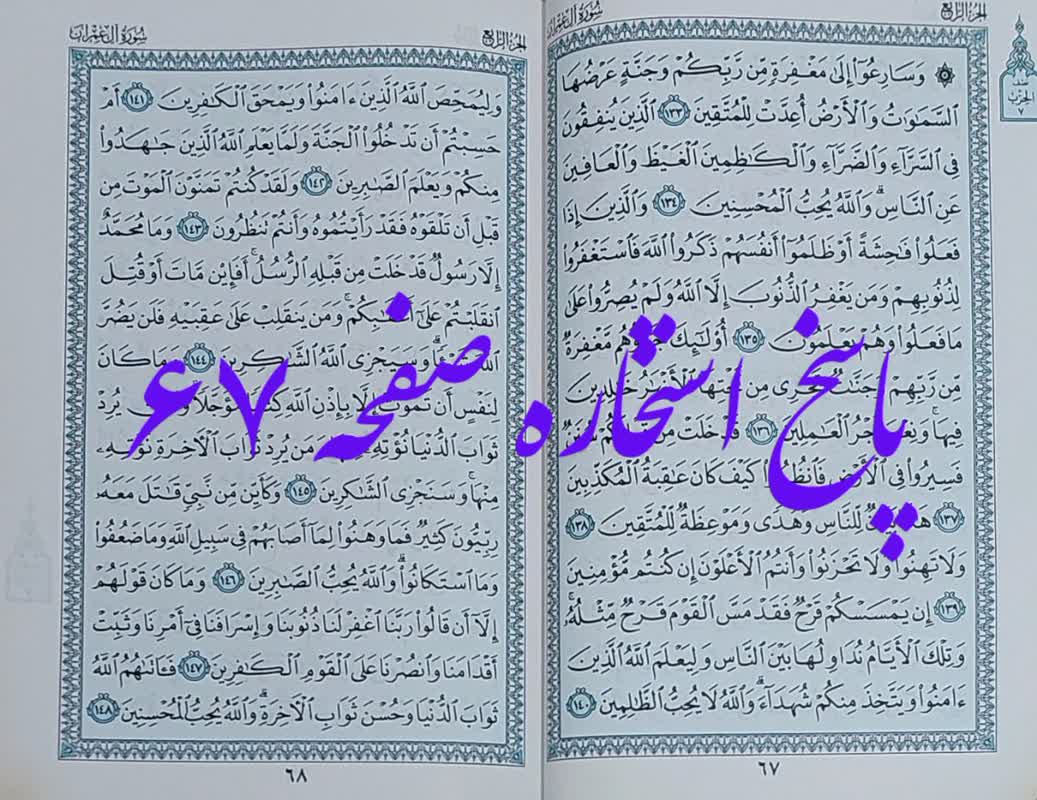 الجزء الرابع
سورة آل عمران
نصف
الحزب
٧
۞ وَسَارِعُوٓا۟ إِلَىٰ مَغْفِرَةٍ مِّن رَّبِّكُمْ وَجَنَّةٍ عَرْضُهَا
ٱلسَّمَٰوَٰتُ وَٱلْأَرْضُ أُعِدَّتْ لِلْمُتَّقِينَ ١٣٣ ٱلَّذِينَ يُنفِقُونَ
فِى ٱلسَّرَّآءِ وَٱلضَّرَّآءِ وَٱلْكَٰظِمِينَ ٱلْغَيْظَ وَٱلْعَافِينَ
عَنِ ٱلنَّاسِ ۗ وَٱللَّهُ يُحِبُّ ٱلْمُحْسِنِينَ ١٣٤ وَٱلَّذِينَ إِذَا
فَعَلُوا۟ فَٰحِشَةً أَوْ ظَلَمُوٓا۟ أَنفُسَهُمْ ذَكَرُوا۟ ٱللَّهَ فَٱسْتَغْفَرُوا۟
لِذُنُوبِهِمْ وَمَن يَغْفِرُ ٱلذُّنُوبَ إِلَّا ٱللَّهُ وَلَمْ يُصِرُّوا۟ عَلَىٰ
مَا فَعَلُوا۟ وَهُمْ يَعْلَمُونَ ١٣٥ أُو۟لَٰٓئِكَ جَزَآؤُهُم مَّغْفِرَةٌ
مِّن رَّبِّهِمْ وَجَنَّٰتٌ تَجْرِى مِن تَحْتِهَا ٱلْأَنْهَٰرُ خَٰلِدِينَ
فِيهَا ۚ وَنِعْمَ أَجْرُ ٱلْعَٰمِلِينَ ١٣٦ قَدْ خَلَتْ مِن قَبْلِكُمْ سُنَنٌ
فَسِيرُوا۟ فِى ٱلْأَرْضِ فَٱنظُرُوا۟ كَيْفَ كَانَ عَٰقِبَةُ ٱلْمُكَذِّبِينَ
١٣٧ هَٰذَا بَيَانٌ لِّلنَّاسِ وَهُدًى وَمَوْعِظَةٌ لِّلْمُتَّقِينَ ١٣٨
وَلَا تَهِنُوا۟ وَلَا تَحْزَنُوا۟ وَأَنتُمُ ٱلْأَعْلَوْنَ إِن كُنتُم مُّؤْمِنِينَ
١٣٩ إِن يَمْسَسْكُمْ قَرْحٌ فَقَدْ مَسَّ ٱلْقَوْمَ قَرْحٌ مِّثْلُهُۥ ۚ
وَتِلْكَ ٱلْأَيَّامُ نُدَاوِلُهَا بَيْنَ ٱلنَّاسِ وَلِيَعْلَمَ ٱللَّهُ ٱلَّذِينَ
ءَامَنُوا۟ وَيَتَّخِذَ مِنكُمْ شُهَدَآءَ ۗ وَٱللَّهُ لَا يُحِبُّ ٱلظَّٰلِمِينَ ١٤٠
٦٧
الجزء الرابع
سورة آل عمران
وَلِيُمَحِّصَ ٱللَّهُ ٱلَّذِينَ ءَامَنُوا۟ وَيَمْحَقَ ٱلْكَٰفِرِينَ ١٤١ أَمْ
حَسِبْتُمْ أَن تَدْخُلُوا۟ ٱلْجَنَّةَ وَلَمَّا يَعْلَمِ ٱللَّهُ ٱلَّذِينَ جَٰهَدُوا۟
مِنكُمْ وَيَعْلَمَ ٱلصَّٰبِرِينَ ١٤٢ وَلَقَدْ كُنتُمْ تَمَنَّوْنَ ٱلْمَوْتَ مِن
قَبْلِ أَن تَلْقَوْهُ فَقَدْ رَأَيْتُمُوهُ وَأَنتُمْ تَنظُرُونَ ١٤٣ وَمَا مُحَمَّدٌ
إِلَّا رَسُولٌ قَدْ خَلَتْ مِن قَبْلِهِ ٱلرُّسُلُ ۚ أَفَإِي۟ن مَّاتَ أَوْ قُتِلَ
ٱنقَلَبْتُمْ عَلَىٰٓ أَعْقَٰبِكُمْ ۚ وَمَن يَنقَلِبْ عَلَىٰ عَقِبَيْهِ فَلَن يَضُرَّ
ٱللَّهَ شَيْـًٔا ۗ وَسَيَجْزِى ٱللَّهُ ٱلشَّٰكِرِينَ ١٤٤ وَمَا كَانَ
لِنَفْسٍ أَن تَمُوتَ إِلَّا بِإِذْنِ ٱللَّهِ كِتَٰبًا مُّؤَجَّلًا ۗ وَمَن يُرِدْ
ثَوَابَ ٱلدُّنْيَا نُؤْتِهِۦ مِنْهَا وَمَن يُرِدْ ثَوَابَ ٱلْءَاخِرَةِ نُؤْتِهِۦ
مِنْهَا ۚ وَسَنَجْزِى ٱلشَّٰكِرِينَ ١٤٥ وَكَأَيِّن مِّن نَّبِىٍّ قَٰتَلَ مَعَهُۥ
رِبِّيُّونَ كَثِيرٌ فَمَا وَهَنُوا۟ لِمَآ أَصَابَهُمْ فِى سَبِيلِ ٱللَّهِ وَمَا ضَعُفُوا۟
وَمَا ٱسْتَكَانُوا۟ ۗ وَٱللَّهُ يُحِبُّ ٱلصَّٰبِرِينَ ١٤٦ وَمَا كَانَ قَوْلَهُمْ
إِلَّآ أَن قَالُوا۟ رَبَّنَا ٱغْفِرْ لَنَا ذُنُوبَنَا وَإِسْرَافَنَا فِىٓ أَمْرِنَا وَثَبِّتْ
أَقْدَامَنَا وَٱنصُرْنَا عَلَى ٱلْقَوْمِ ٱلْكَٰفِرِينَ ١٤٧ فَـَٔاتَىٰهُمُ ٱللَّهُ
ثَوَابَ ٱلدُّنْيَا وَحُسْنَ ثَوَابِ ٱلْءَاخِرَةِ ۗ وَٱللَّهُ يُحِبُّ ٱلْمُحْسِنِينَ ١٤٨
٦٨
پاسخ استخاره صفحه ۶۷